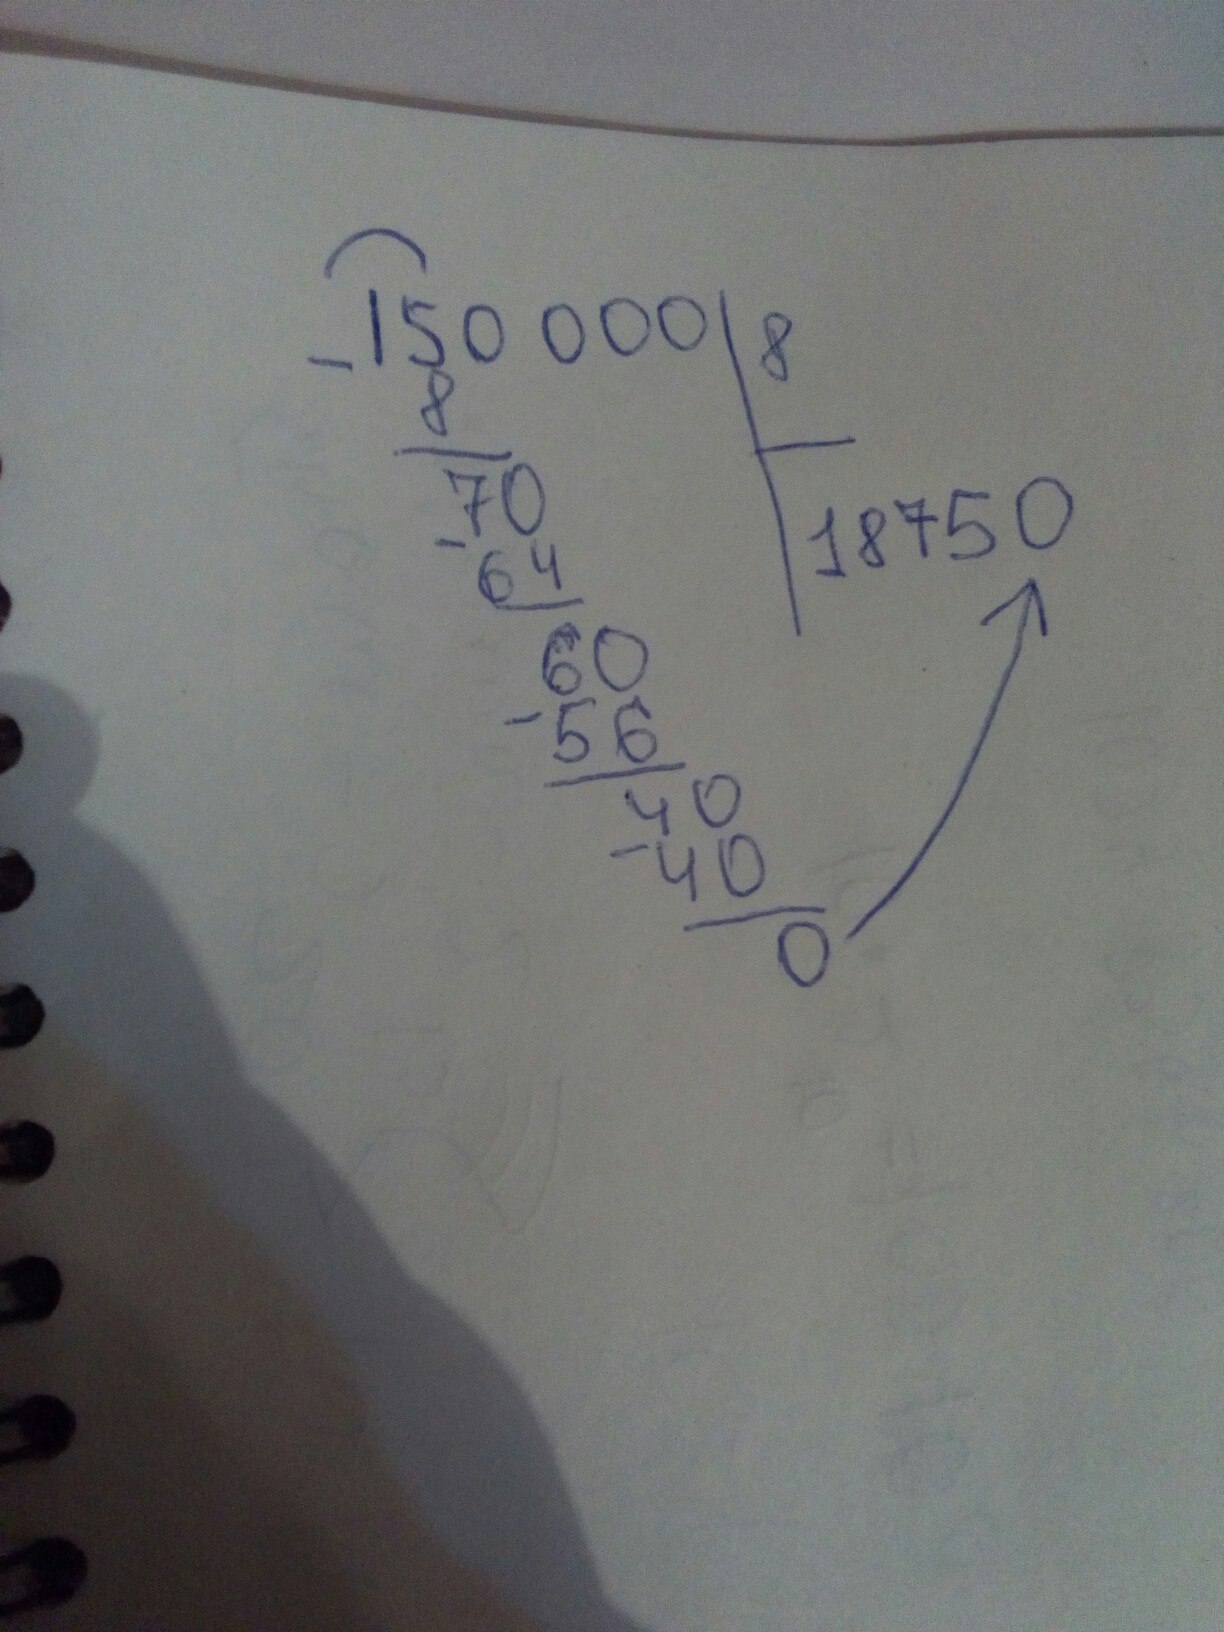 -150 000 8
8
70 18750
-64
60
-56
40
-40
0